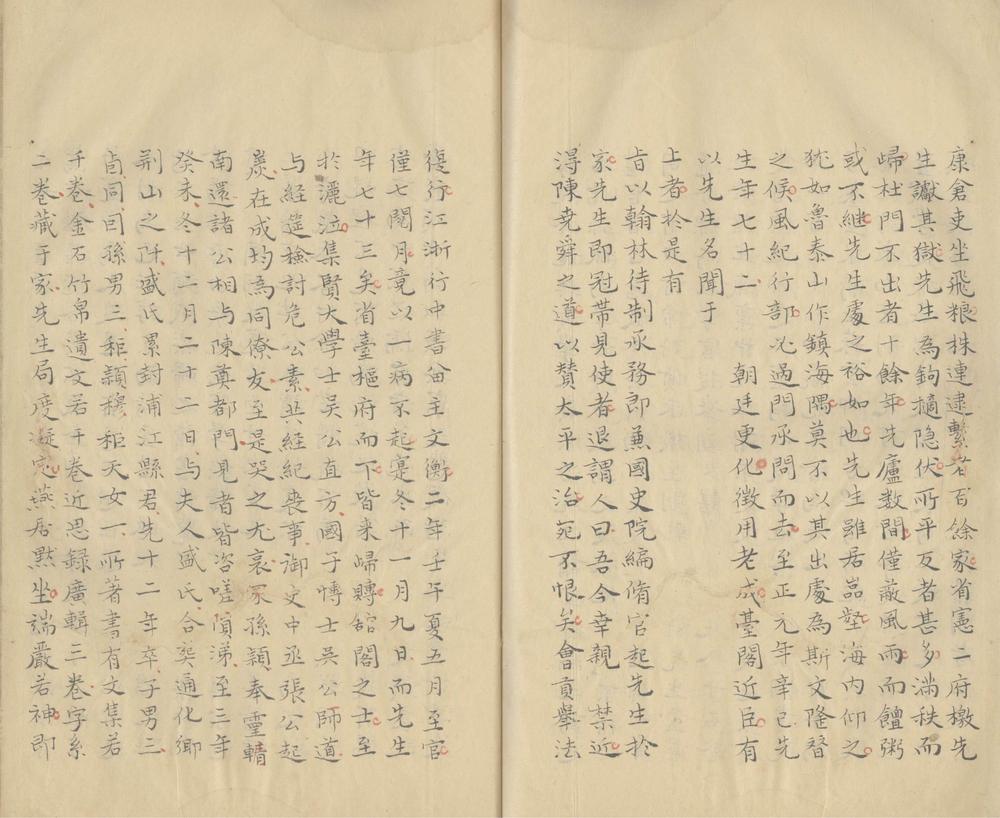 康倉吏坐飛粮株連逮繫者百餘家省憲二府檄先
生讞其獄先生為鉤擿隐伏所平反者甚多滿秩而
歸杜門不出者十餘年先廬数間僅蔽風雨而饘粥
或不継先生處之裕如也先生雖居嵓壑海内仰之
犹如魯泰山作鎮海隅莫不以其出處為斯文隆替
之候風紀行部必過門承問而去至正元年辛已先
生年七十二　朝廷更化徵用老成䑓閣近臣有
以先生名聞于
上者於是有
旨以翰林待制承務郎蕪國史院編脩官起先生於
家先生即冠帶見使者退謂人曰吾今幸親　禁近
淂陳堯舜之道以賛太平之治死不恨矣會貢舉法
復行江浙行中書㽞主文衡二年壬午夏五月至官
僅七閱月竟以一病不起寔冬十一月九日而先生
年七十三矣省臺樞府而下皆来歸賻舘閣之士至
於灑泣集賢大學士吳公直方國子博士吳公師道
与経筵檢討危公素共經紀喪事御史中丞張公起
巖在成均為同僚友至是哭之尤哀冢孫穎奉靈輤
南還諸公相与陳奠都門見者皆咨嗟隕涕至三年
癸未冬十二月二十二日与夫人盛氏合𦵏通化郷
荆山之阡盛氏累封浦江縣君先十二年卒子男三
卣同囙孫男三秬穎穆秬夭女一所著書有文集若
千卷金石竹帛遺文若干卷近思録廣輯三卷字系
二卷藏于家先生局度凝定燕居黙坐端嚴若神即